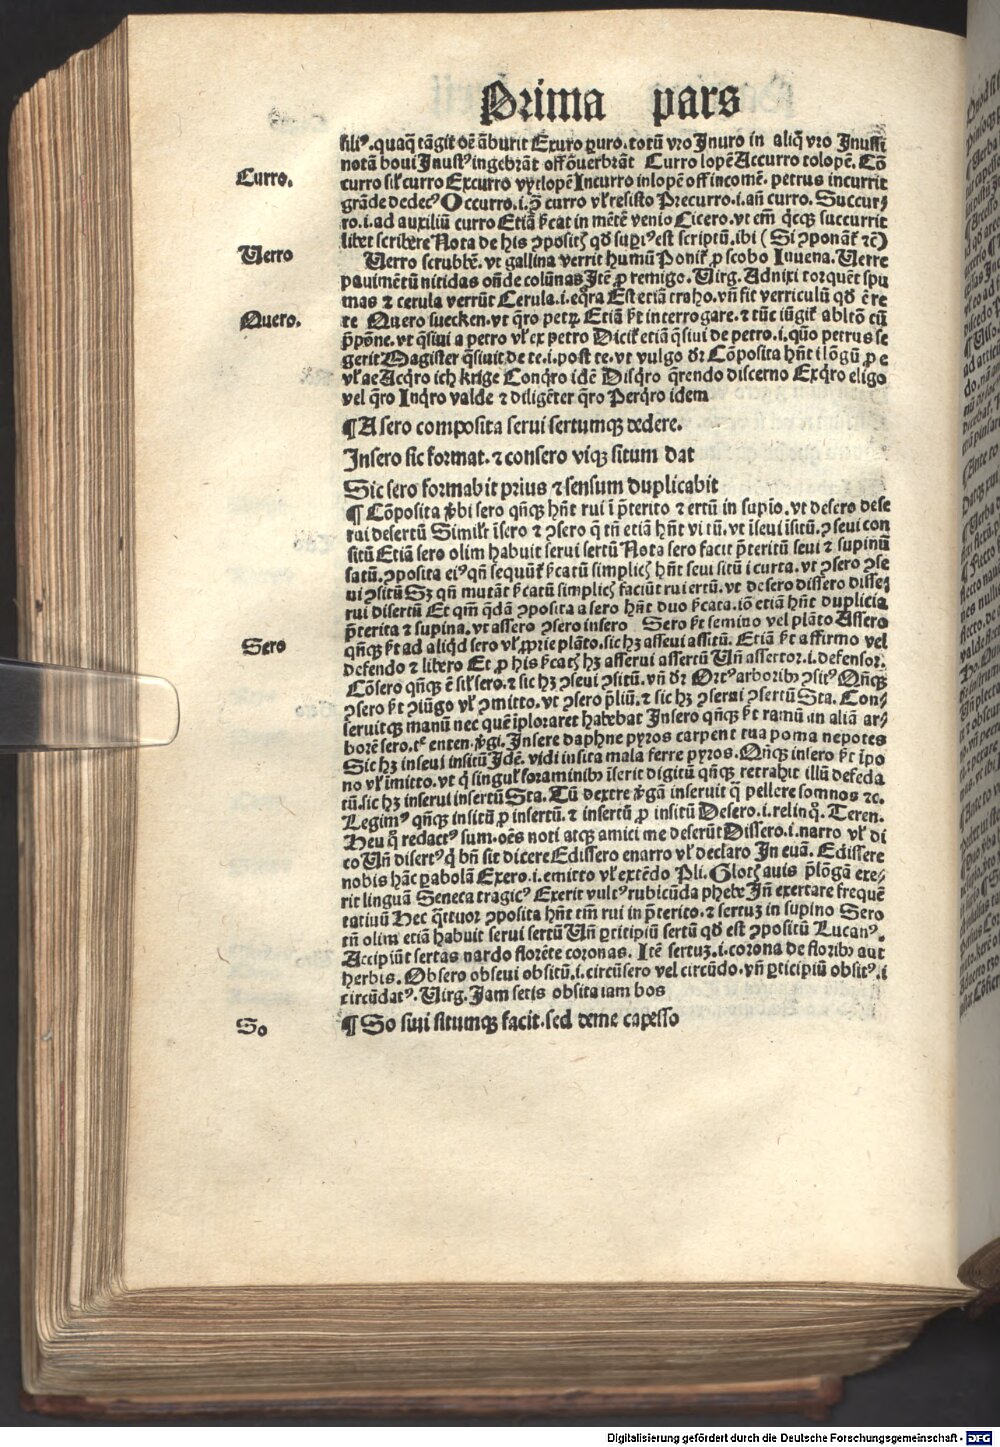 Prima pars
siliꝰ. quaqꝫ tāgit oē āburit Exuro ꝑuro. totū vro Inuro in aliqͥ vro Inussi
notā boui Inustꝰ ingebrāt off ȫuerbrāt Curro lopē Accurro tolopē. Cō
Curro.
curro sil̛ curro Excurro vytlopē Incurro inlopē off incomē. petrus incurrit
grāde dedecꝰ Occurro. i. ꝯͣ curro vl̛ resisto Precurro. i. añ curro. Succur⸗
ro. i. ad auxiliū curro Etiā ſicat in mētē venio Cicero. vt em̄ qͥcqꝫ succurrit
libet scribere Nota de his ꝯpositꝭ qd̄ supͥꝰ est scriptū. ibi (Si ꝯponāt̛ ⁊c̄)
Uerro
Uerro scrubbē. vt gallina verrit humū Ponit̛ ꝓ scobo Iuuena. Uerre
pauimētū nitidas ōnde colūnas Itē ꝓ remigo. Virg. Adnixi torquēt spu
mas ⁊ cerula verrūt Cerula. i. eqͦra Est etiā traho. vn̄ fit verriculū qd̄ ē re
Quero.
te Quero suecken. vt qͣro petrꝫ Etiā pͦt interrogare. ⁊ tūc iūgit̛ abltō cū
p̄pōne. vt qͣsiui a petro vl̛ ex petro Dicit̛ etiā qͣsiui de petro. i. quō petrus se
gerit Magister qͣsiuit de te. i. post te. vt vulgo dr̄ Cōposita hn̄t i lōgū ꝓ e
vl̛ ae Acqͥro ich krige Conqͥro idē Disqͥro qͣrendo discerno Exqͥro eligo
vel qͣro Inqͥro valde ⁊ diligēter qͣro Perqͥro idem
¶ A sero composita serui sertumqꝫ dedere.
Insero sic format. ⁊ consero viqꝫ situm dat
Sic sero formabit prius ⁊ sensum duplicabit
¶ Cōposita ꝟbi sero qn̄qꝫ hn̄t rui ī p̄terito ⁊ ertū in supīo. vt desero dese
rui desertū Similit̛ īsero ⁊ ꝯsero qͥ tn̄ etiā hn̄t vi tū. vt īseui īsitū. ꝯseui con
sitū Etiā sero olim habuit serui sertū Nota sero facit p̄teritū seui ⁊ supinū
satū. ꝯposita eiꝰ qn̄ sequūt̛ ſcatū simplicꝭ hn̄t seui situ i curta. vt ꝯsero ꝯse
ui ꝯsitū Sꝫ qn̄ mutāt ſcatū simplicꝭ faciūt rui ertū. vt desero dissero disse⸗
rui disertū Et qm̄ qͥdā ꝯposita a sero hn̄t duo ſcata. iō etiā hn̄t duplicia
p̄terita ⁊ supina. vt assero ꝯsero insero Sero ſt semino vel plāto Assero
Sero
qn̄qꝫ ſt ad aliqͥd sero vl̛ ꝓprie plāto. sic hꝫ asseui assitū. Etiā ſt affirmo vel
defendo ⁊ libero Et ꝓ his ſcatꝭ hꝫ asserui assertū Un̄ assertor. i. defensor.
Cōsero qn̄qꝫ ē sil̛ sero. ⁊ sic hꝫ ꝯseui ꝯsitū. vn̄ dr̄ Ortꝰ arboribꝰ ꝯsitꝰ Qn̄qꝫ
ꝯsero ſt ꝯiūgo vl̛ ꝯmitto. vt ꝯsero p̄liū. ⁊ sic hꝫ ꝯserui ꝯsertū Sta. Con⸗
seruitqꝫ manū nec quē īploraret habebat Insero qn̄qꝫ ſt ramū in aliā ar⸗
borē sero. tͤ enten. ꝟgi. Insere daphne pyros carpent tua poma nepotes
Sic hꝫ inseui insitū Idē. vidi insita mala ferre pyros. Qn̄qꝫ insero ſt īpo
no vl̛ imitto. vt qͥ singul̛ foraminibꝰ īserit digitū qn̄qꝫ retrahit illū defeda
tū. sic hꝫ inserui insertū Sta. Tū dextre ꝟgā inseruit qͣ pellere somnos ⁊c.
Legimꝰ qn̄qꝫ insitū ꝓ insertū. ⁊ insertū ꝓ insitū Desero. i. relinqͦ. Teren.
Heu qͦ redactꝰ sum. oēs noti atqꝫ amici me deserūt Dissero. i. narro vl̛ di
co Un̄ disertꝰ qͥ bn̄ sit dicere Edissero enarro vl̛ declaro In euā. Edissere
nobis hāc ꝑabolā Exero. i. emitto vl̛ extēdo Pli. Glotꝭ auis p̄lōgā exe⸗
rit linguā Seneca tragicꝰ Exerit vultꝰ rubicūda phebe In̄ exertare frequē
tatiuū Hec qͣttuor ꝯposita hn̄t tm̄ rui in p̄terito. ⁊ sertuꝫ in supino Sero
tn̄ olim etiā habuit serui sertū Un̄ ꝑticipiū sertū qd̄ est ꝯpositū Lucanꝰ.
Accipiūt sertas nardo florēte coronas. Itē sertuꝫ. i. corona de floribꝰ aut
herbis. Obsero obseui obsitū. i. circūsero vel circūdo. vn̄ ꝑticipiū obsitꝰ. i
circūdatꝰ. Virg. Iam setis obsita iam bos
So
¶ So siui situmqꝫ facit. sed deme capesso
Digitalisierung gefördert durch die Deutsche Forschungsgemeinschaft - DFG